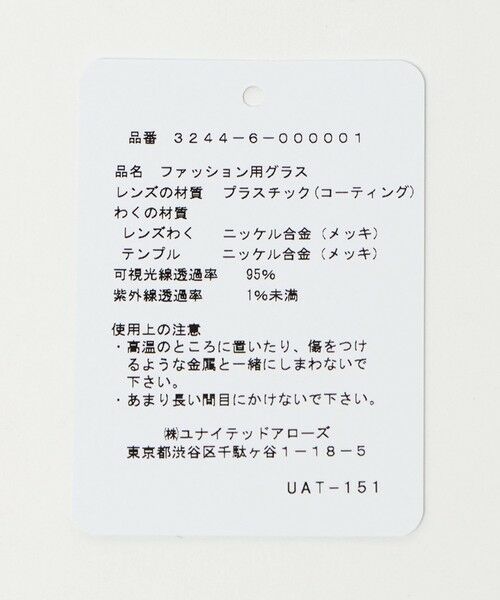 品番 3244-6-000001
品名 ファッション用グラス
レンズの材質 プラスチック(コーティング)
わくの材質
レンズわく ニッケル合金(メッキ)
テンプル ニッケル合金(メッキ)
可視光線透過率 95%
紫外線透過率 1%未満
使用上の注意
・高温のところに置いたり、傷をつけ
るような金属と一緒にしまわないで
下さい。
・あまり長い間目にかけないで下さい。
㈱ユナイテッドアローズ
東京都渋谷区千駄ヶ谷1-18-5
UAT-151